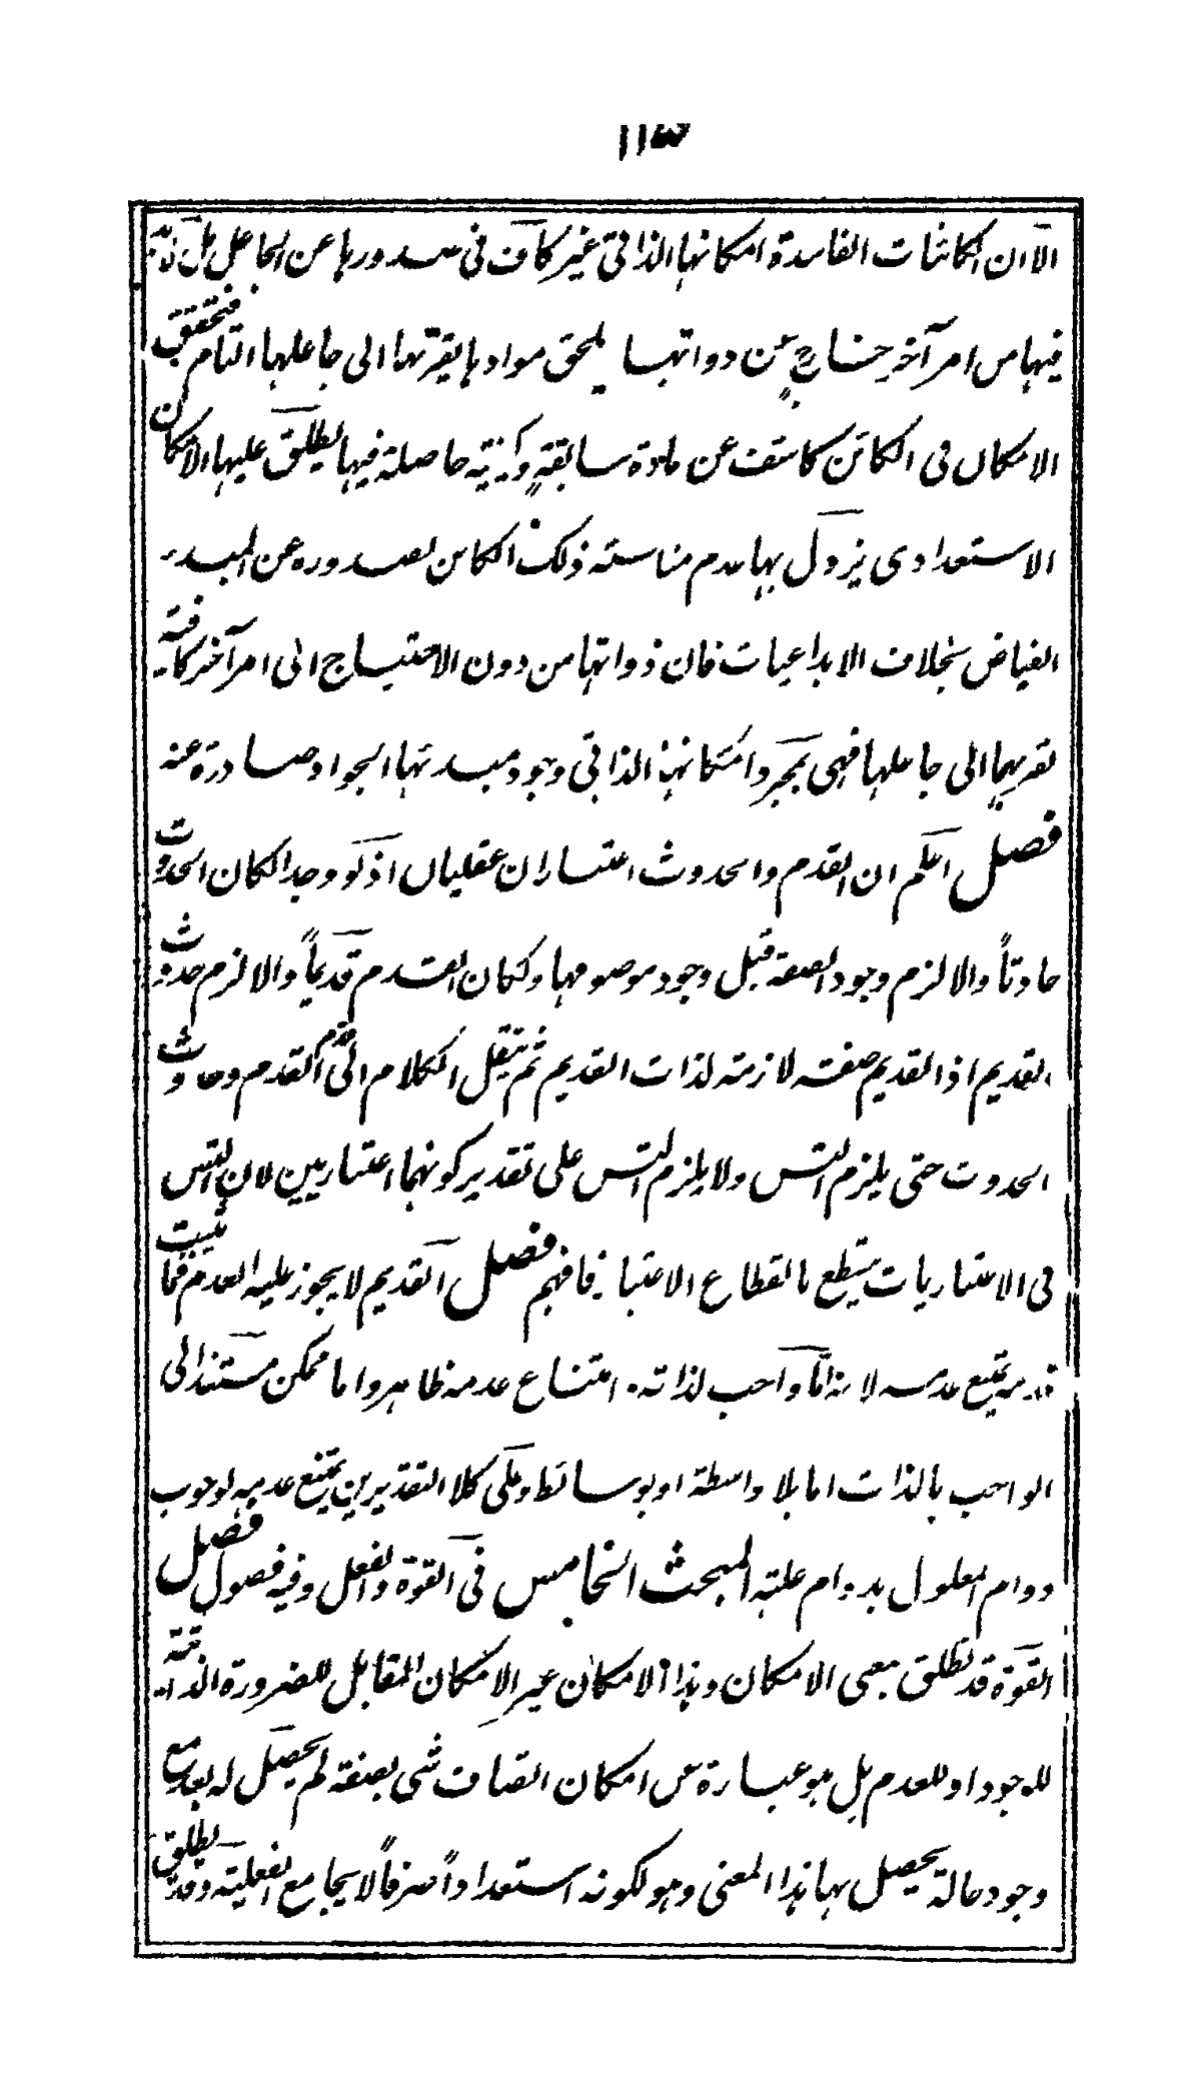 ١١٣
الا ان الكائنات الفاسدة امكانها الذاتى غير كاف فى صدورها عن الجاعل بل لابد
فيها من امر آخر خارج عن ذواتها يلحق موادها يقربها الى جاعلها التام فتحقق
الامكان فى الكائن كاشف عن مادة سابقة وكيفية حاصلة فيها يطلق عليها الامكان
الاستعدادى يزول بها عدم مناسبة ذلك الكائن لصدوره عن المبدء
الفياض بخلاف الابداعيات فان ذواتها من دون الاحتياج الى امر آخر كافية
تقربها الى جاعلها فهى بمجرد امكانها الذاتى وجود مبدئها الجواد صادرة عنه
فصل اعلم ان القدم والحدوث اعتباران عقليان اذ لو وجدا لكان الحدوث
حادثاً والا لزم وجود الصفة قبل وجود موصوفها ولكان القدم قديماً والا لزم حدوث
القديم اذ القديم صفته لازمة لذات القديم ثم ينقل الكلام الى قدم القدم وحدوث
الحدوث حتى يلزم التس ولا يلزم التس على تقدير كونهما اعتباريين لان التس
فى الاعتباريات ينقطع بانقطاع الاعتبار فافهم فصل القديم لا يجوز عليه العدم فما ثبت
قدمه يمتنع عدمه لانه اما واجب لذاته فامتناع عدمه ظاهر واما ممكن مستند الى
الواجب بالذات اما بلا واسطة او بوسائط وعلى كلا التقديرين يمتنع عدمه لوجوب
دوام المعلول بدوام علته المبحث الخامس فى القوة والفعل وفيه فصول فصل
القوة قد تطلق بمعنى الامكان وهذا الامكان غير الامكان المقابل للضرورة الذاتية
للوجود او للعدم بل هو عبارة عن امكان اتصاف شئ بصفة لم يحصل له بعد مع
وجود حالة يحصل بها هذا المعنى وهو لكونه استعداداً صرفاً لا يجامع الفعلية وقد يطلق